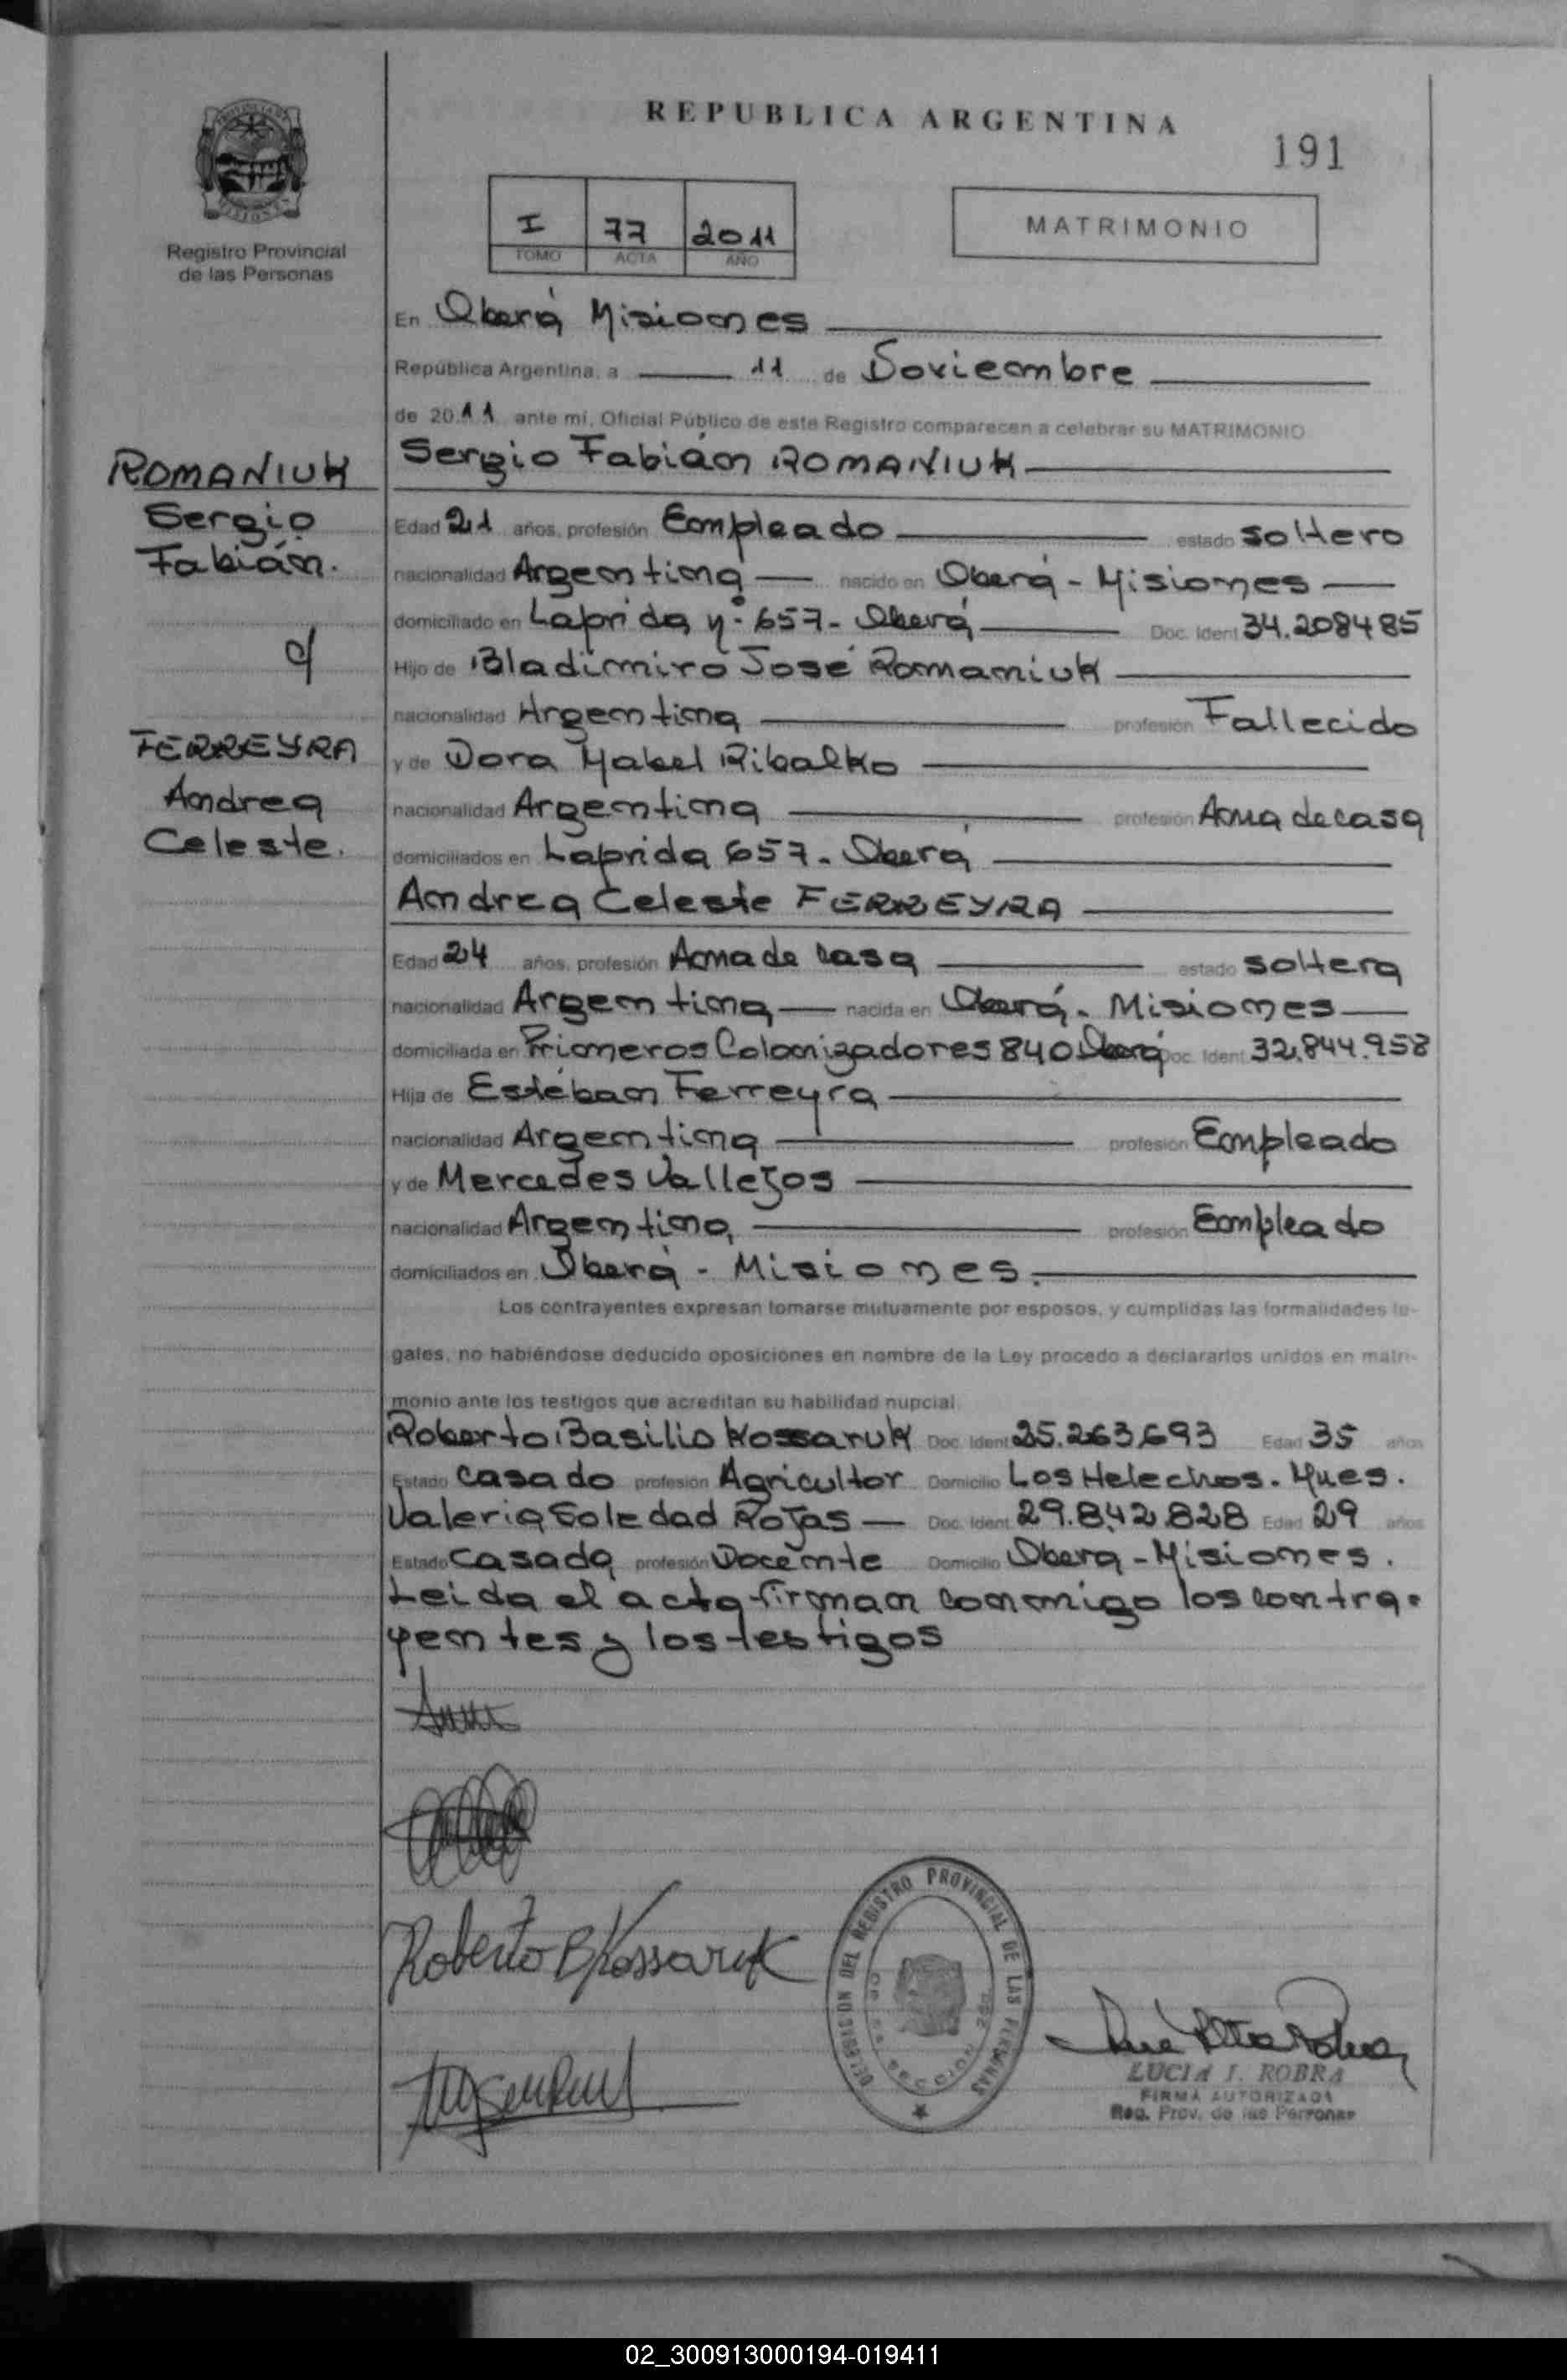 REPUBLICA ARGENTINA
191
Registro Provincial
de las Personas
I 77 2011
TOMO ACTA AÑO
MATRIMONIO
En Oberá Misiones
República Argentina, a 11 de Noviembre
de 2011 ante mi, Oficial Público de este Registro comparecen a celebrar su MATRIMONIO
Sergio Fabián ROMANIUK
ROMANIUK
Sergio
Fabián.
c/
FERREYRA
Andrea
Celeste.
Edad 21 años, profesión Empleado estado soltero
nacionalidad Argentina nacido en Oberá - Misiones
domiciliado en Laprida nº 657 - Oberá Doc. Ident 34.208485
Hijo de Bladimiro José Romaniuk
nacionalidad Argentina profesión Fallecido
y de Dora Mabel Ribalko
nacionalidad Argentina profesión Ama de casa
domiciliados en Laprida 657 - Oberá
Andrea Celeste FERREYRA
Edad 24 años, profesión Ama de casa estado soltera
nacionalidad Argentina nacida en Oberá - Misiones
domiciliada en Primeros Colonizadores 840 Oberá Doc. Ident 32.844.958
Hija de Esteban Ferreyra
nacionalidad Argentina profesión Empleado
y de Mercedes Vallejos
nacionalidad Argentina profesión Empleado
domiciliados en Oberá - Misiones.
Los contrayentes expresan tomarse mutuamente por esposos, y cumplidas las formalidades le-
gales, no habiéndose deducido oposiciones en nombre de la Ley procedo a declararlos unidos en matri-
monio ante los testigos que acreditan su habilidad nupcial.
Roberto Basilio Kossaruk Doc. Ident 25.263693 Edad 35 años
Estado casado profesión Agricultor Domicilio Los Helechos. Mnes.
Valeria Soledad Rojas Doc. Ident 29.842.828 Edad 29 años
Estado Casada profesión Docente Domicilio Obera - Misiones.
Leida el acta firman conmigo los contra-
yentes y los testigos
Roberto B Kossaruk
DELEGACION DEL REGISTRO PROVINCIAL DE LAS PERSONAS
LUCIA I. ROBRA
FIRMA AUTORIZADA
Reg. Prov. de las Personas
02_300913000194-019411